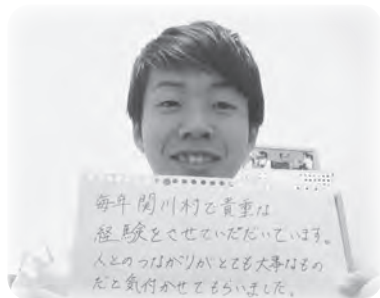 毎年関川村で貴重な
経験をさせていだだいています。
人とのつながりがとても大事なもの
だと気付かせてもらいました。